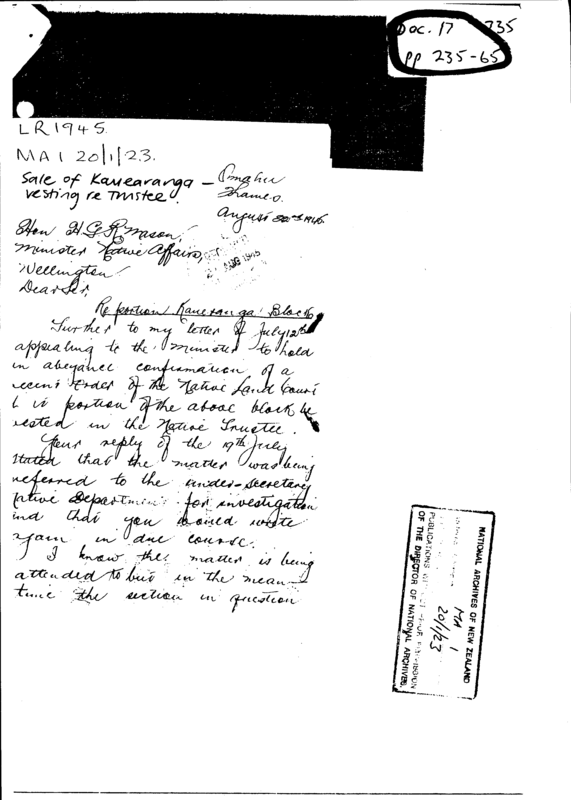 Doc. 17 235
pp 235-65
LR1945.
MA 1 20/1/23.
Sale of Kauearanga -
vesting re Trustee.
Omahu
Thames.
August 1945
Hon H G R Mason,
Minister Native Affairs,
Wellington
Dear Sir,
AUG 1945
Re portion Kaueranga Block
Further to my letter of July 12th
appealing to the Minister to hold
in abeyance confirmation of a
recent order of the Native Land Court
portion of the above block be
vested in the Native Trustee.
Your reply of the 19th July
stated that the matter was being
referred to the under-Secretary
Native Department for investigation
and that you would write
again in due course.
I know the matter is being
attended to but in the mean-
time the section in question
NATIONAL ARCHIVES OF NEW ZEALAND
MA 1
20/1/23
PUBLICATIONS PERMISSION
OF THE DIRECTOR OF NATIONAL ARCHIVES.